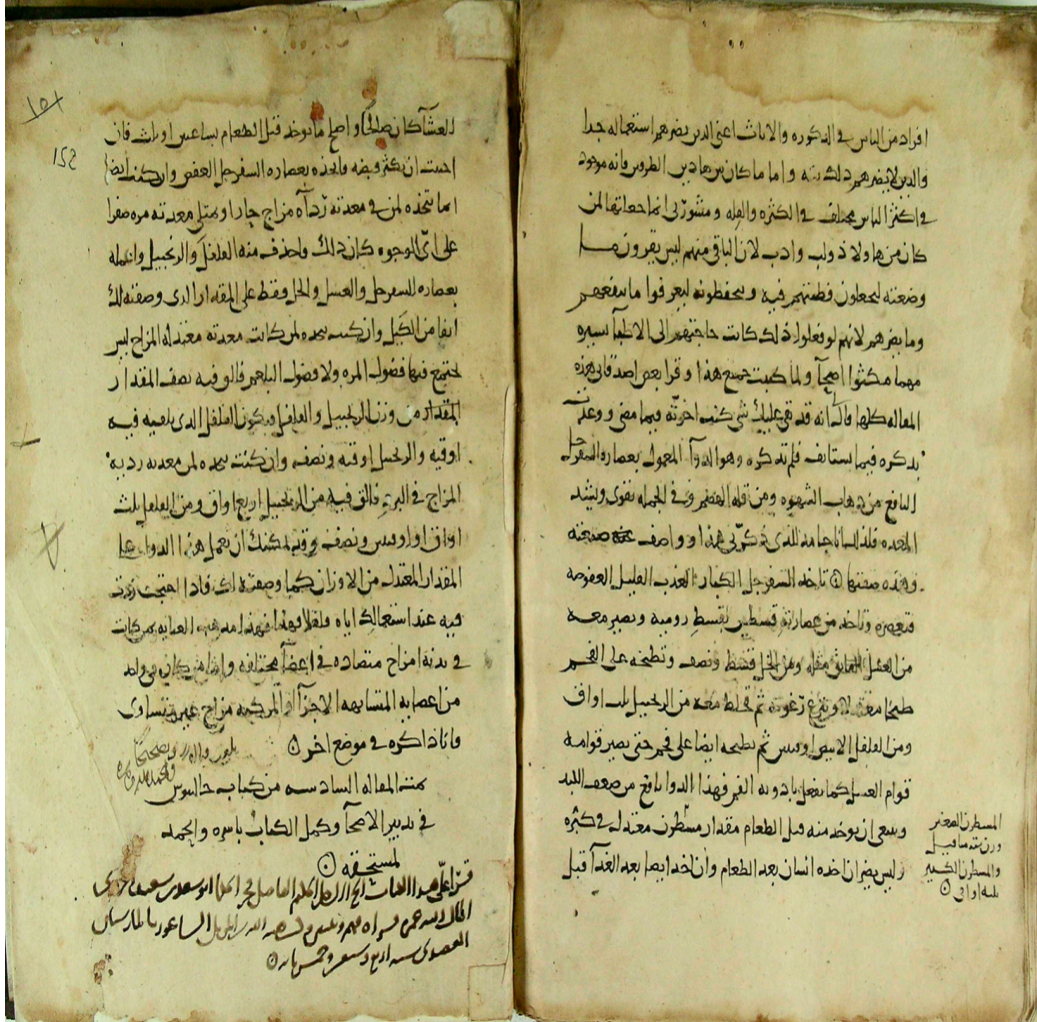 افراد من الناس في الذكوره والاناث اعني الذين يضرهم استعماله جدا
والذين لا يضرهم ذلك بته واما ما كان بين هاذين الطرفين فانه موجود
في اكثر الناس مختلف في الكثره والقله ومشورتي انما جعلتها لمن
كان من هاولا ذو لب وادب لان الباقي منهم ليس يقرون ما
وضعته ليجعلون فطنتهم فيه ويتحفظونه ليعرفوا ما ينفعهم
وما يضرهم لانهم لو فعلوا ذلك كانت حاجتهم الى الاطبآ يسيره
مهما مكثوا اصحآ ولما كتبت جميع هذا وقرا بعض اصدقاى هذه
المقاله كلها قال انه قد بقي عليك شي كنت اخرته فيما مضى ووعدت
بذكره فيما يستانف فلم تذكره وهو الدوآ المعمول بعصاره السفرجل
النافع من ذهاب الشهوه ومن قله الهضم وفي الجمله يقوى ويشد
المعده فلذلك انا حامد للذى ذكرني هذا وواصف صنعته
وهذه صفتها تاخذ السفرجل الكبار العذب القليل العفوصه
فتعصره وتاخذ من عصارته قسطين بقسط روميه وتصير معه
من العسل الفايق مثله ومن الخل قسط ونصف وتطبخه على الفحم
طبخا معتدلا وتنزع رغوته ثم تخلط معه من الزنجبيل ثلث اواق
ومن الفلفل الابيض اوقيتين ثم تطبخه ايضا على فحم حتى يصير قوامه
قوام العسل كما يفعل بادويه الفم فهذا الدوا نافع من ضعف الكبد
وينبغي ان يوخذ منه قبل الطعام مقدار مسطرن معتدل في كثره
وليس يضر ان اخذه انسان بعد الطعام وان اخذ ايضا بعد الغدآ قبل
المسطرن الصغير
وزن سته مثاقيل
والمسطرن الكبير
ثلثه اواقي
١٥٢
العشآ كان صالحا واصلح ما يوخذ قبل الطعام بساعتين او ثلث فان
احببت ان يكثر قبضه فاتخذه بعصاره السفرجل العفص وان كنت ايضا
انما تتخذه لمن في معدته ردآه مزاج حار او يمتلى معدته مره صفرا
على اى الوجوه كان ذلك فاحذف منه الفلفل والزنجبيل واعمله
بعصاره السفرجل والعسل والخل فقط على المقدار الذى وصفته لك
انفا من الكيل وان كنت تتخذه لمن كانت معدته معتدله المزاج ليس
يجتمع فيها فضول المره ولا فضول البلغم فالق فيه نصف المقدار
المقدار من وزن الزنجبيل والفلفل فيكون الفلفل الذى يلقيه فيه
اوقيه والزنجبيل اوقيه ونصف وان كنت تتخذه لمن معدته رديه
المزاج في البرد فالق فيه من الزنجبيل اربع اواق ومن الفلفل ثلث
اواق او اوقيتين ونصف وقد يمكنك ان تعمل هذا الدوا على
المقدار المعتدل من الاوزان كما وصفته لك فاذا احتجت زدت
فيه عند استعمالك اياه فهذا مذهب العنايه بمن كانت
في بدنه امزاج متضاده في اعضآ مختلفه وايضا من كان في واحد
من اعضايه المتشابهه الاجزآ او المركبه مزاج غير متساوى
وانا ذاكره في موضع اخر
تمت المقاله السادسه من كتاب جالينوس
في تدبير الاصحآ وكمل الكتاب باسره والحمد
لمستحقه
قرا على هذا الكتاب الفاضل ابو سعد بن سعيد
الساعور بالمارستان
العضدى سنه اربع وخمس مايه